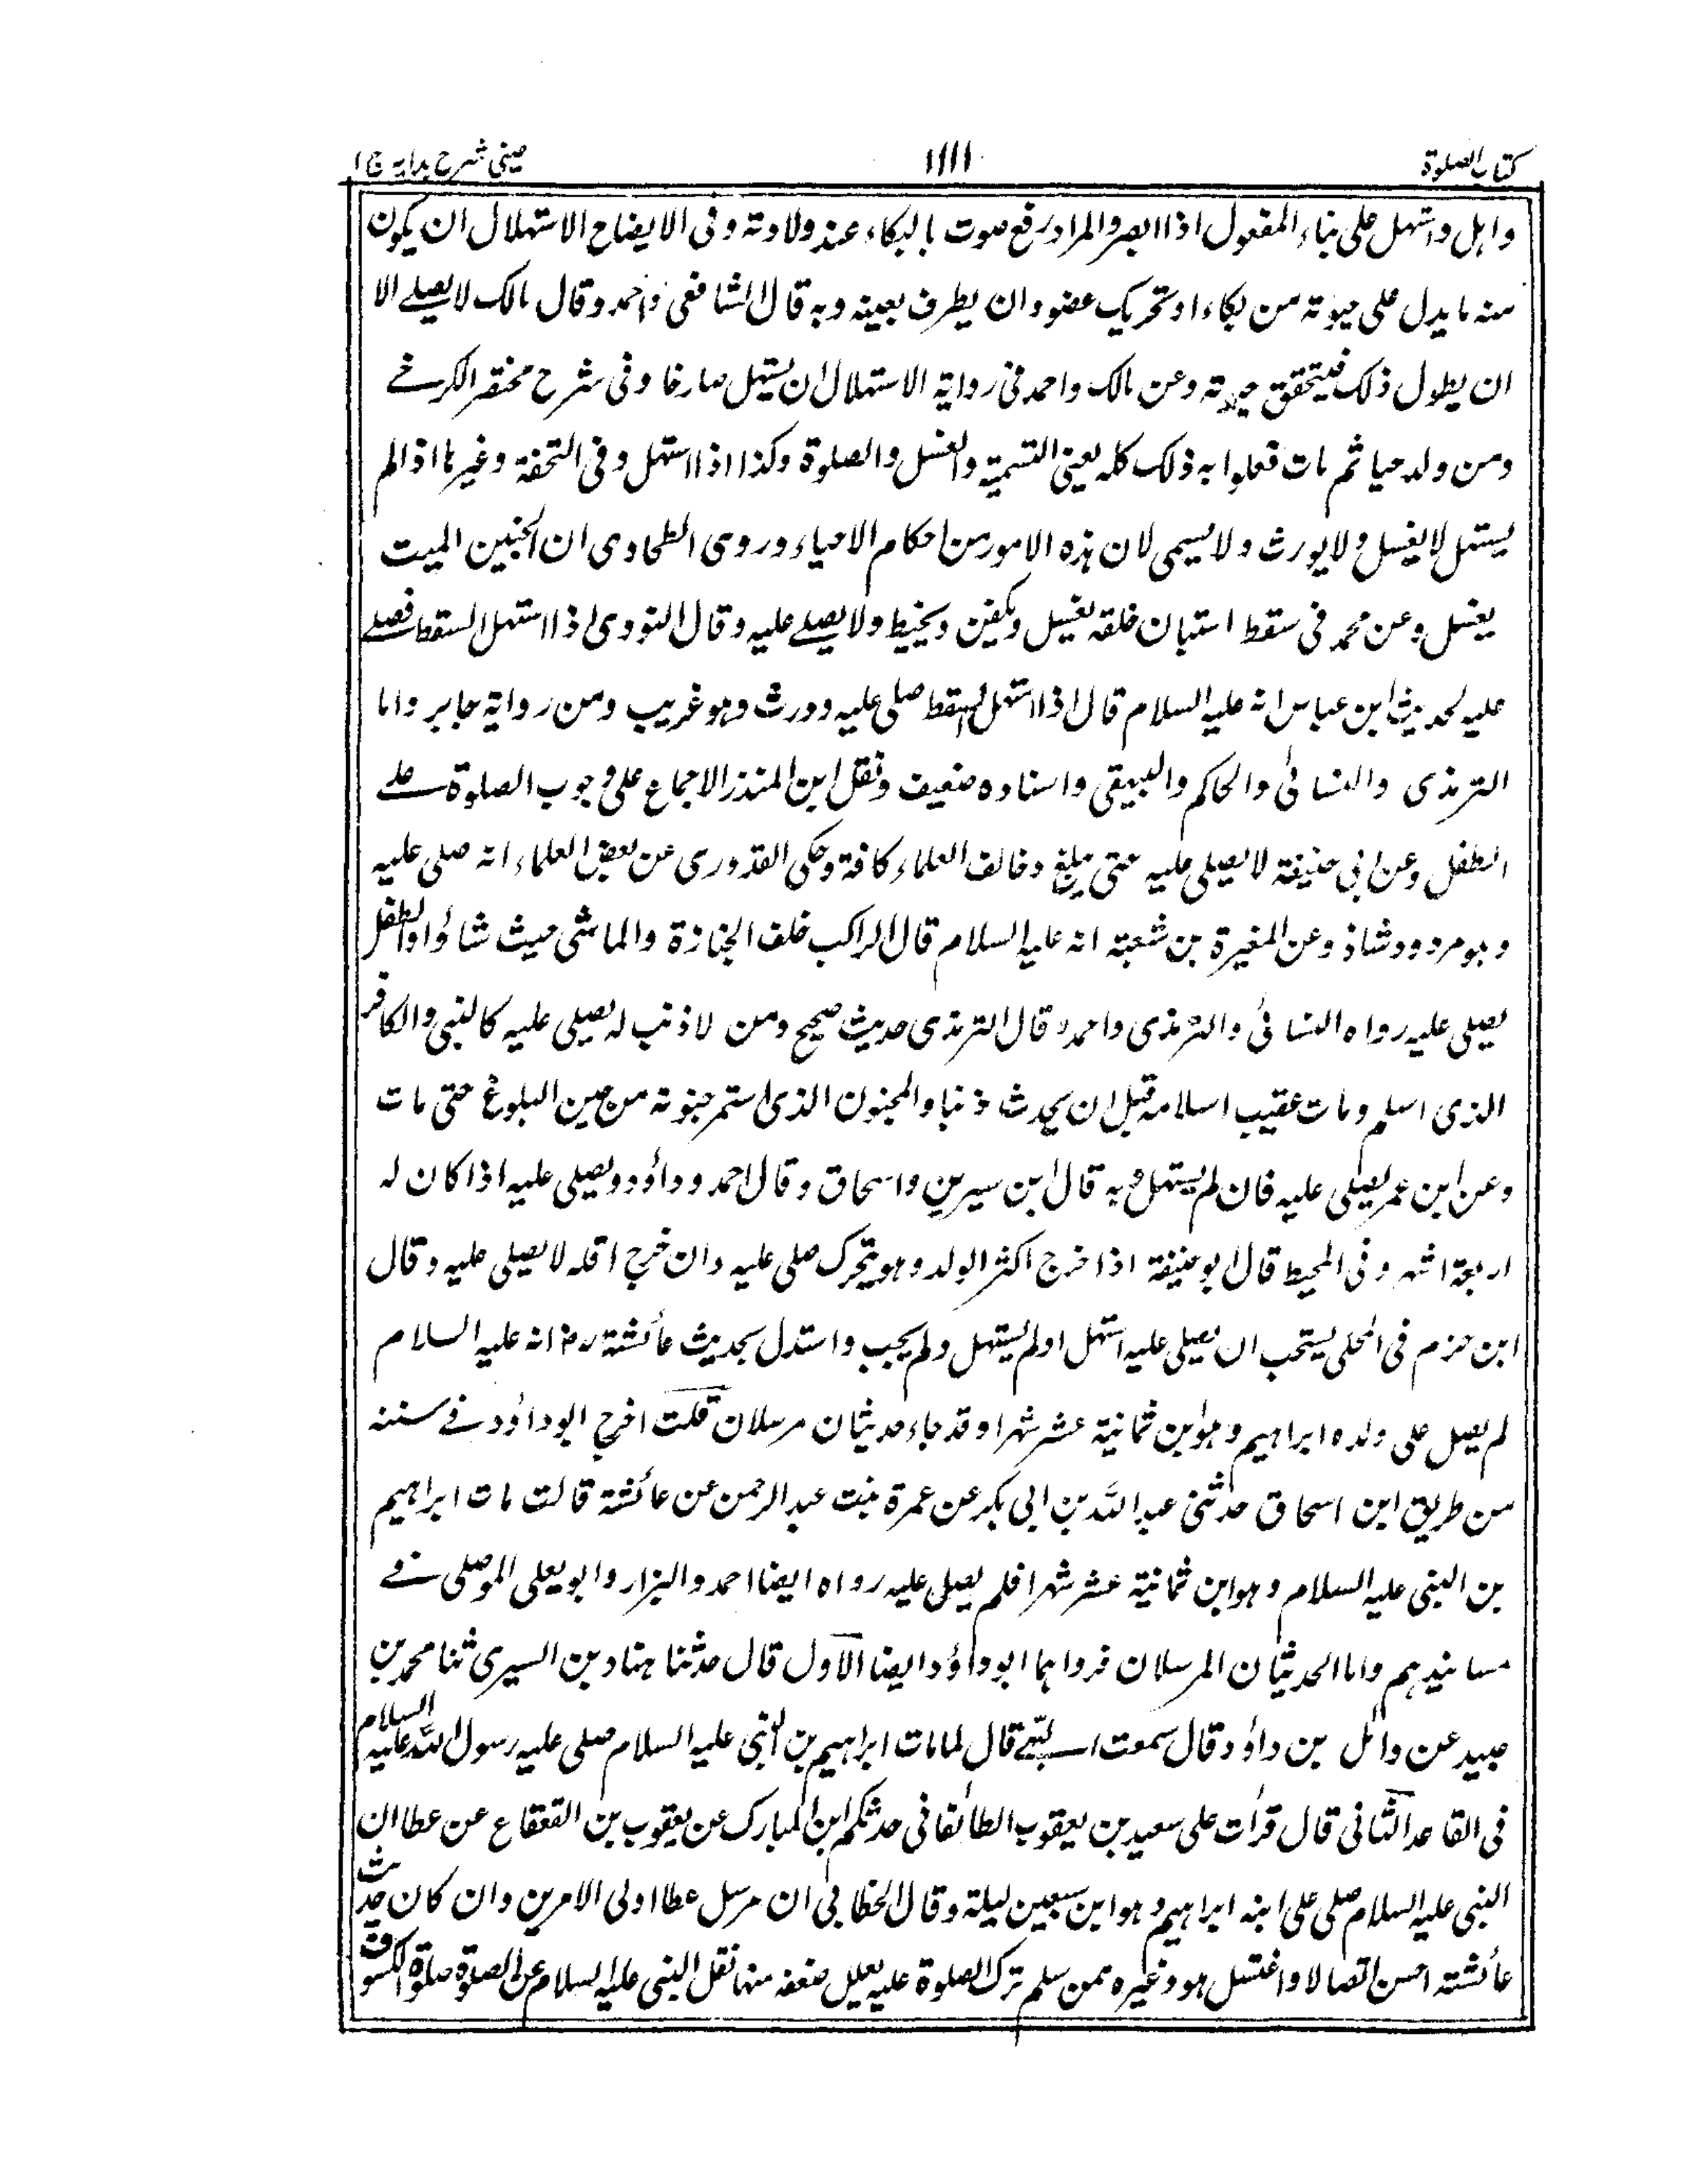 كتاب الصلوة
١١١١
عينى شرح هدايه ج ١
واهل واستهل على بناء المفعول اذا ابصر والمراد رفع صوت بالبكاء عند ولادته وفى الايضاح الاستهلال ان يكون
منه ما يدل على حيوته من بكاء او تحريك عضو وان يطرف بعينه وبه قال الشافعى واحمد وقال مالك لا يصلے الا
ان يطول ذلك فيتحقق حيوته وعن مالك واحمد فى رواية الاستهلال ان يستهل صارخا وفى شرح مختصر الكرخے
ومن ولد حيا ثم مات فعلوا به ذلك كله يعنى التسمية والغسل والصلوة وكذا اذا استهل وفى التحفة وغيرها اذا لم
يستهل لا يغسل ولا يورث ولا يسمى لان هذه الامور من احكام الاحياء وروى الطحاوى ان الجنين الميت
يغسل وعن محمد فى سقط استبان خلقه يغسل ويكفن ويحنط ولا يصلے عليه وقال النووى اذا استهل السقط فصلے
عليه لحديث ابن عباس انه عليه السلام قال اذا استهل السقط صلى عليه وورث وهو غريب ومن رواية جابر واما
الترمذى والنسائى والحاكم والبيهقى واسناده ضعيف ونقل ابن المنذر الاجماع على وجوب الصلوة علے
الطفل وعن ابى حنيفة لا يصلى عليه حتى يبلغ وخالف العلماء كافة وحكى القدورى عن بعض العلماء انه صلى عليه
وهو مردود شاذ وعن المغيرة بن شعبته انه عليه السلام قال الراكب خلف الجنازة والماشى حيث شاؤا والطفل
يصلى عليه رواه النسائى والترمذى واحمد وقال الترمذى حديث صحيح ومن لا ذنب له يصلى عليه كالنبى والكافر
الذى اسلم ومات عقيب اسلامه قبل ان يحدث ذنبا والمجنون الذى استمر جنونه من حين البلوغ حتى مات
وعن ابن عمر يصلى عليه فان لم يستهل وبه قال ابن سيرين واسحاق وقال احمد وداؤد ويصلى عليه اذا كان له
اربعة اشهر وفى المحيط قال ابو حنيفة اذا خرج اكثر الولد وهو يتحرك صلى عليه وان خرج اقله لا يصلى عليه وقال
ابن حزم فى المحلى يستحب ان يصلى عليه استهل اولم يستهل ولم يجب واستدل بحديث عائشة رض انه عليه السلام
لم يصل على ولده ابراهيم وهو ابن ثمانية عشر شهرا وقد جاء حديثان مرسلان قلت اخرج ابو داؤد فے سننه
من طريق ابن اسحاق حدثنى عبد الله بن ابى بكر عن عمرة بنت عبد الرحمن عن عائشة قالت مات ابراهيم
بن النبى عليه السلام وهو ابن ثمانية عشر شهرا فلم يصل عليه رواه ايضا احمد والبزار وابو يعلى الموصلى فے
مسانيدهم واما الحديثان المرسلان فرواهما ابو داؤد ايضا الاول قال حدثنا هناد بن السيرى ثنا محمد بن
عبيد عن وائل بن داؤد قال سمعت البهے قال لما مات ابراهيم بن النبى عليه السلام صلى عليه رسول الله عليه السلام
فى القاعد الثانى قال قرأت على سعيد بن يعقوب الطالقانى حدثكم ابن المبارك عن يعقوب بن القعقاع عن عطا ان
النبى عليه السلام صلى على ابنه ابراهيم وهو ابن سبعين ليلة وقال الخطابى ان مرسل عطا اولى الامرين وان كان حديث
عائشته احسن اتصالا واغتسل هو وغيره ممن سلم ترك الصلوة عليه بعلل ضعفه منها نقل النبى عليه السلام عن الصلوة صلوة الكسوف